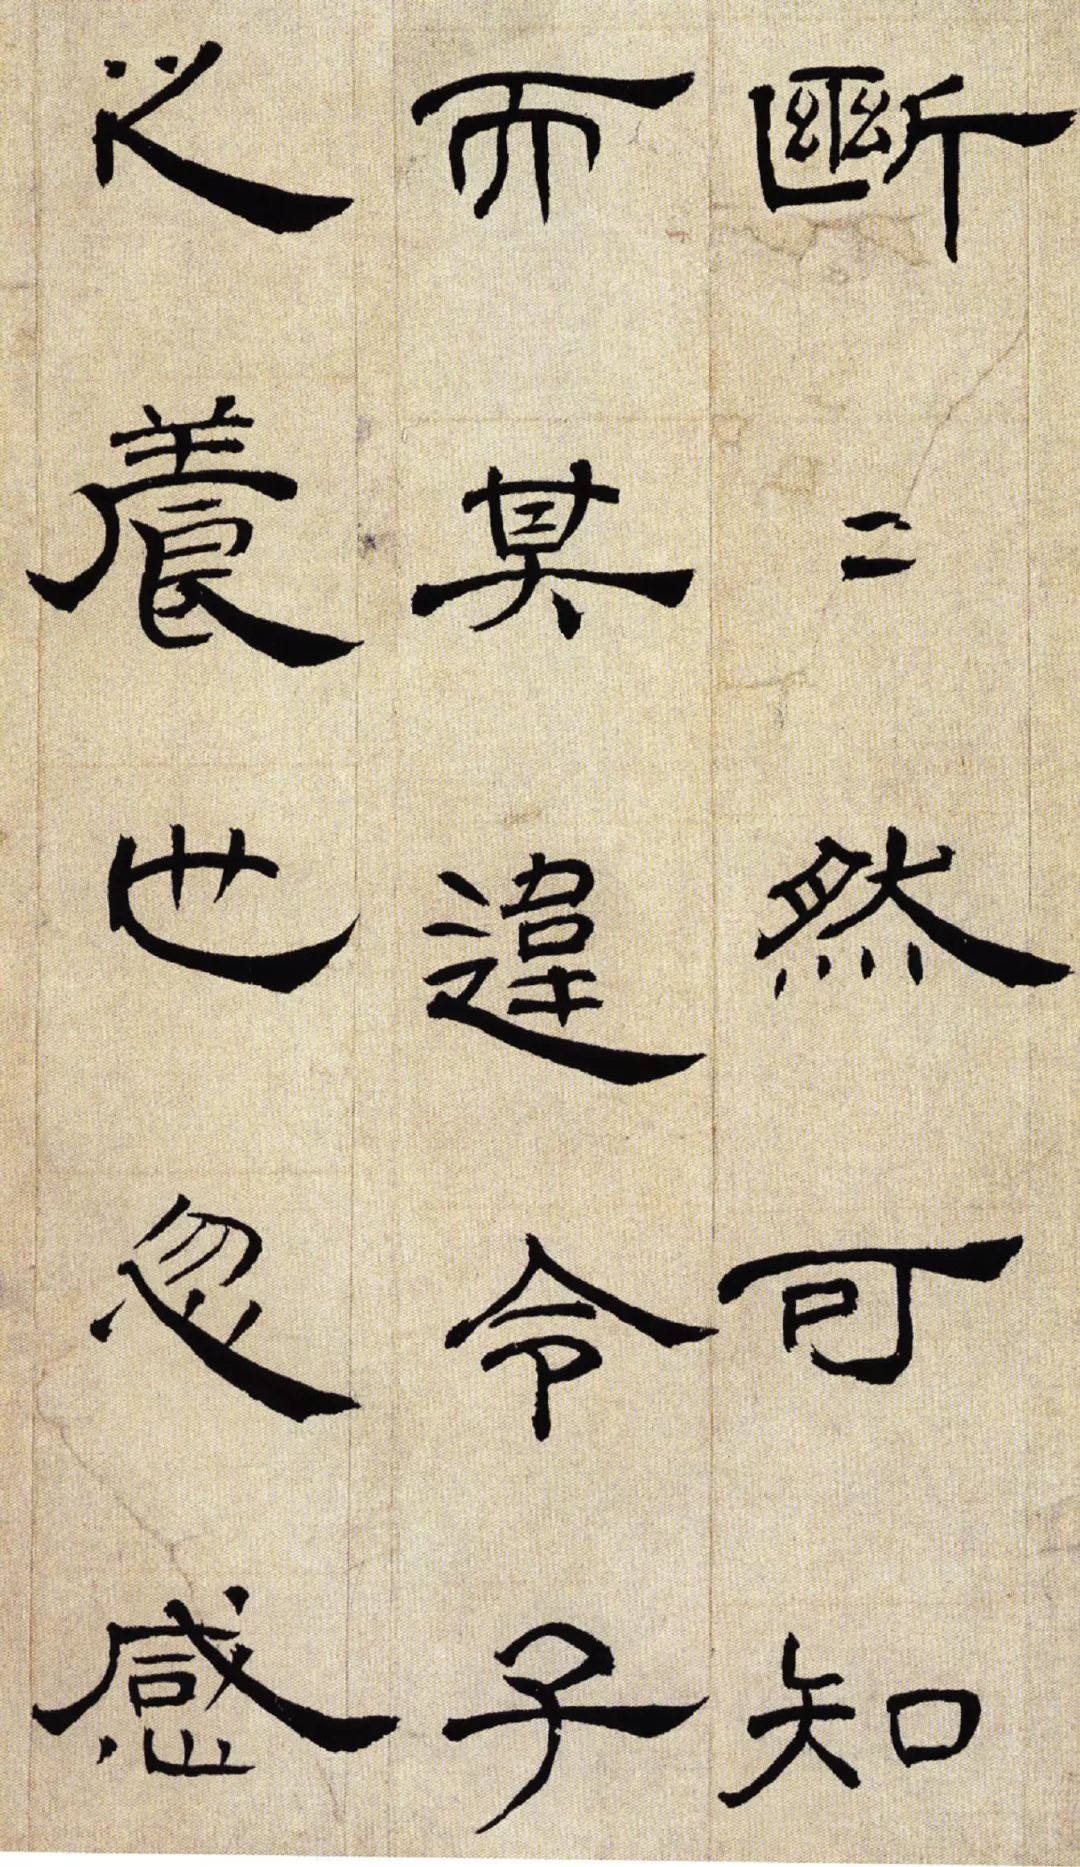 斷〻然可知
而其違令子
之養也忽感